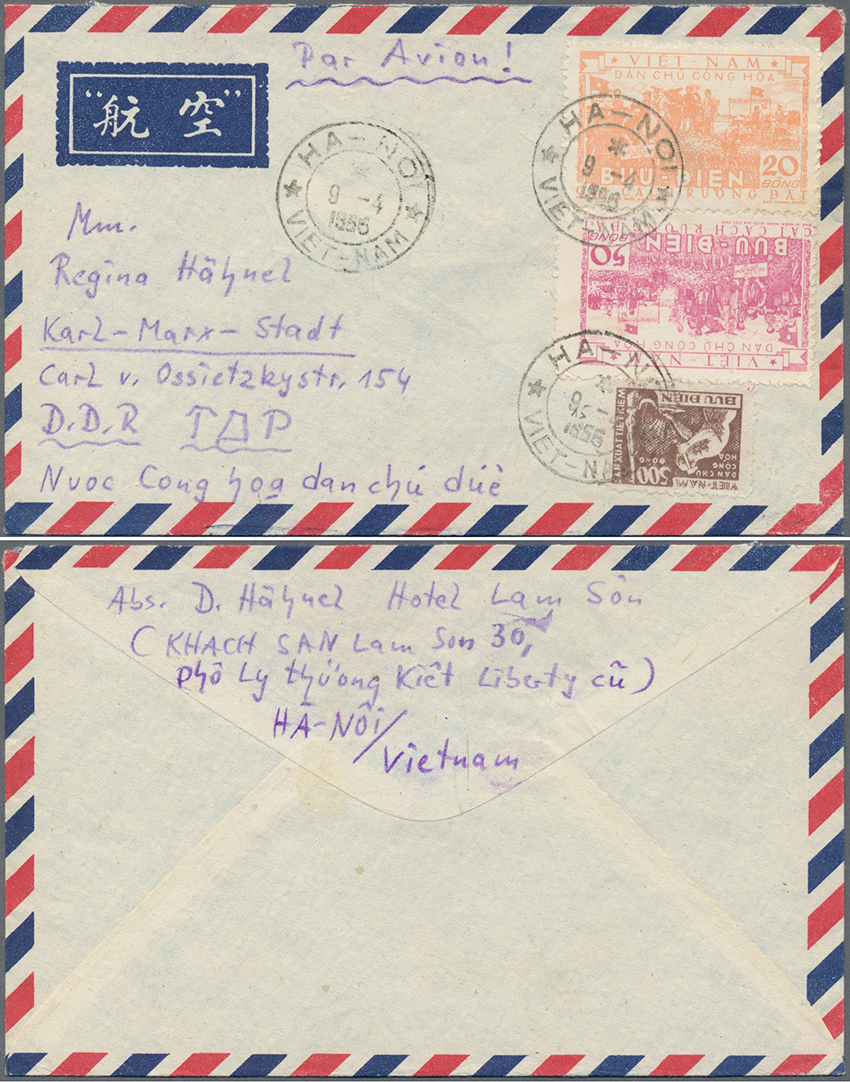 Par Avion!
"航空"
HA-NOI
9-4
1956
VIET-NAM
VIỆT-NAM
DÂN CHỦ CỘNG HÒA
20
ĐỒNG
BƯU-ĐIỆN
RUỘNG ĐẤT
HA-NOI
9-4
1956
VIET-NAM
CẢI CÁCH
BƯU-ĐIỆN
50
ĐỒNG
DÂN CHỦ CỘNG HÒA
VIỆT-NAM
HA-N
1956
VIET-NA
BƯU ĐIỆN
XUẤT TIẾT KIỆM
500
ĐỒNG
DÂN CHỦ
CỘNG
HÒA
VIỆT-NAM
Mm.
Regina Hähnel
Karl-Marx-Stadt
Carl v. Ossietzkystr. 154
D.D.R ГДР
Nuoc Cong hoạ dan chú dúê
Abs. D. Hähnel Hotel Lam Sôn
(KHACH SAN Lam Son 30,
phô Ly thúong Kiêt Liberty cũ)
HÀ-NÔi/
Vietnam